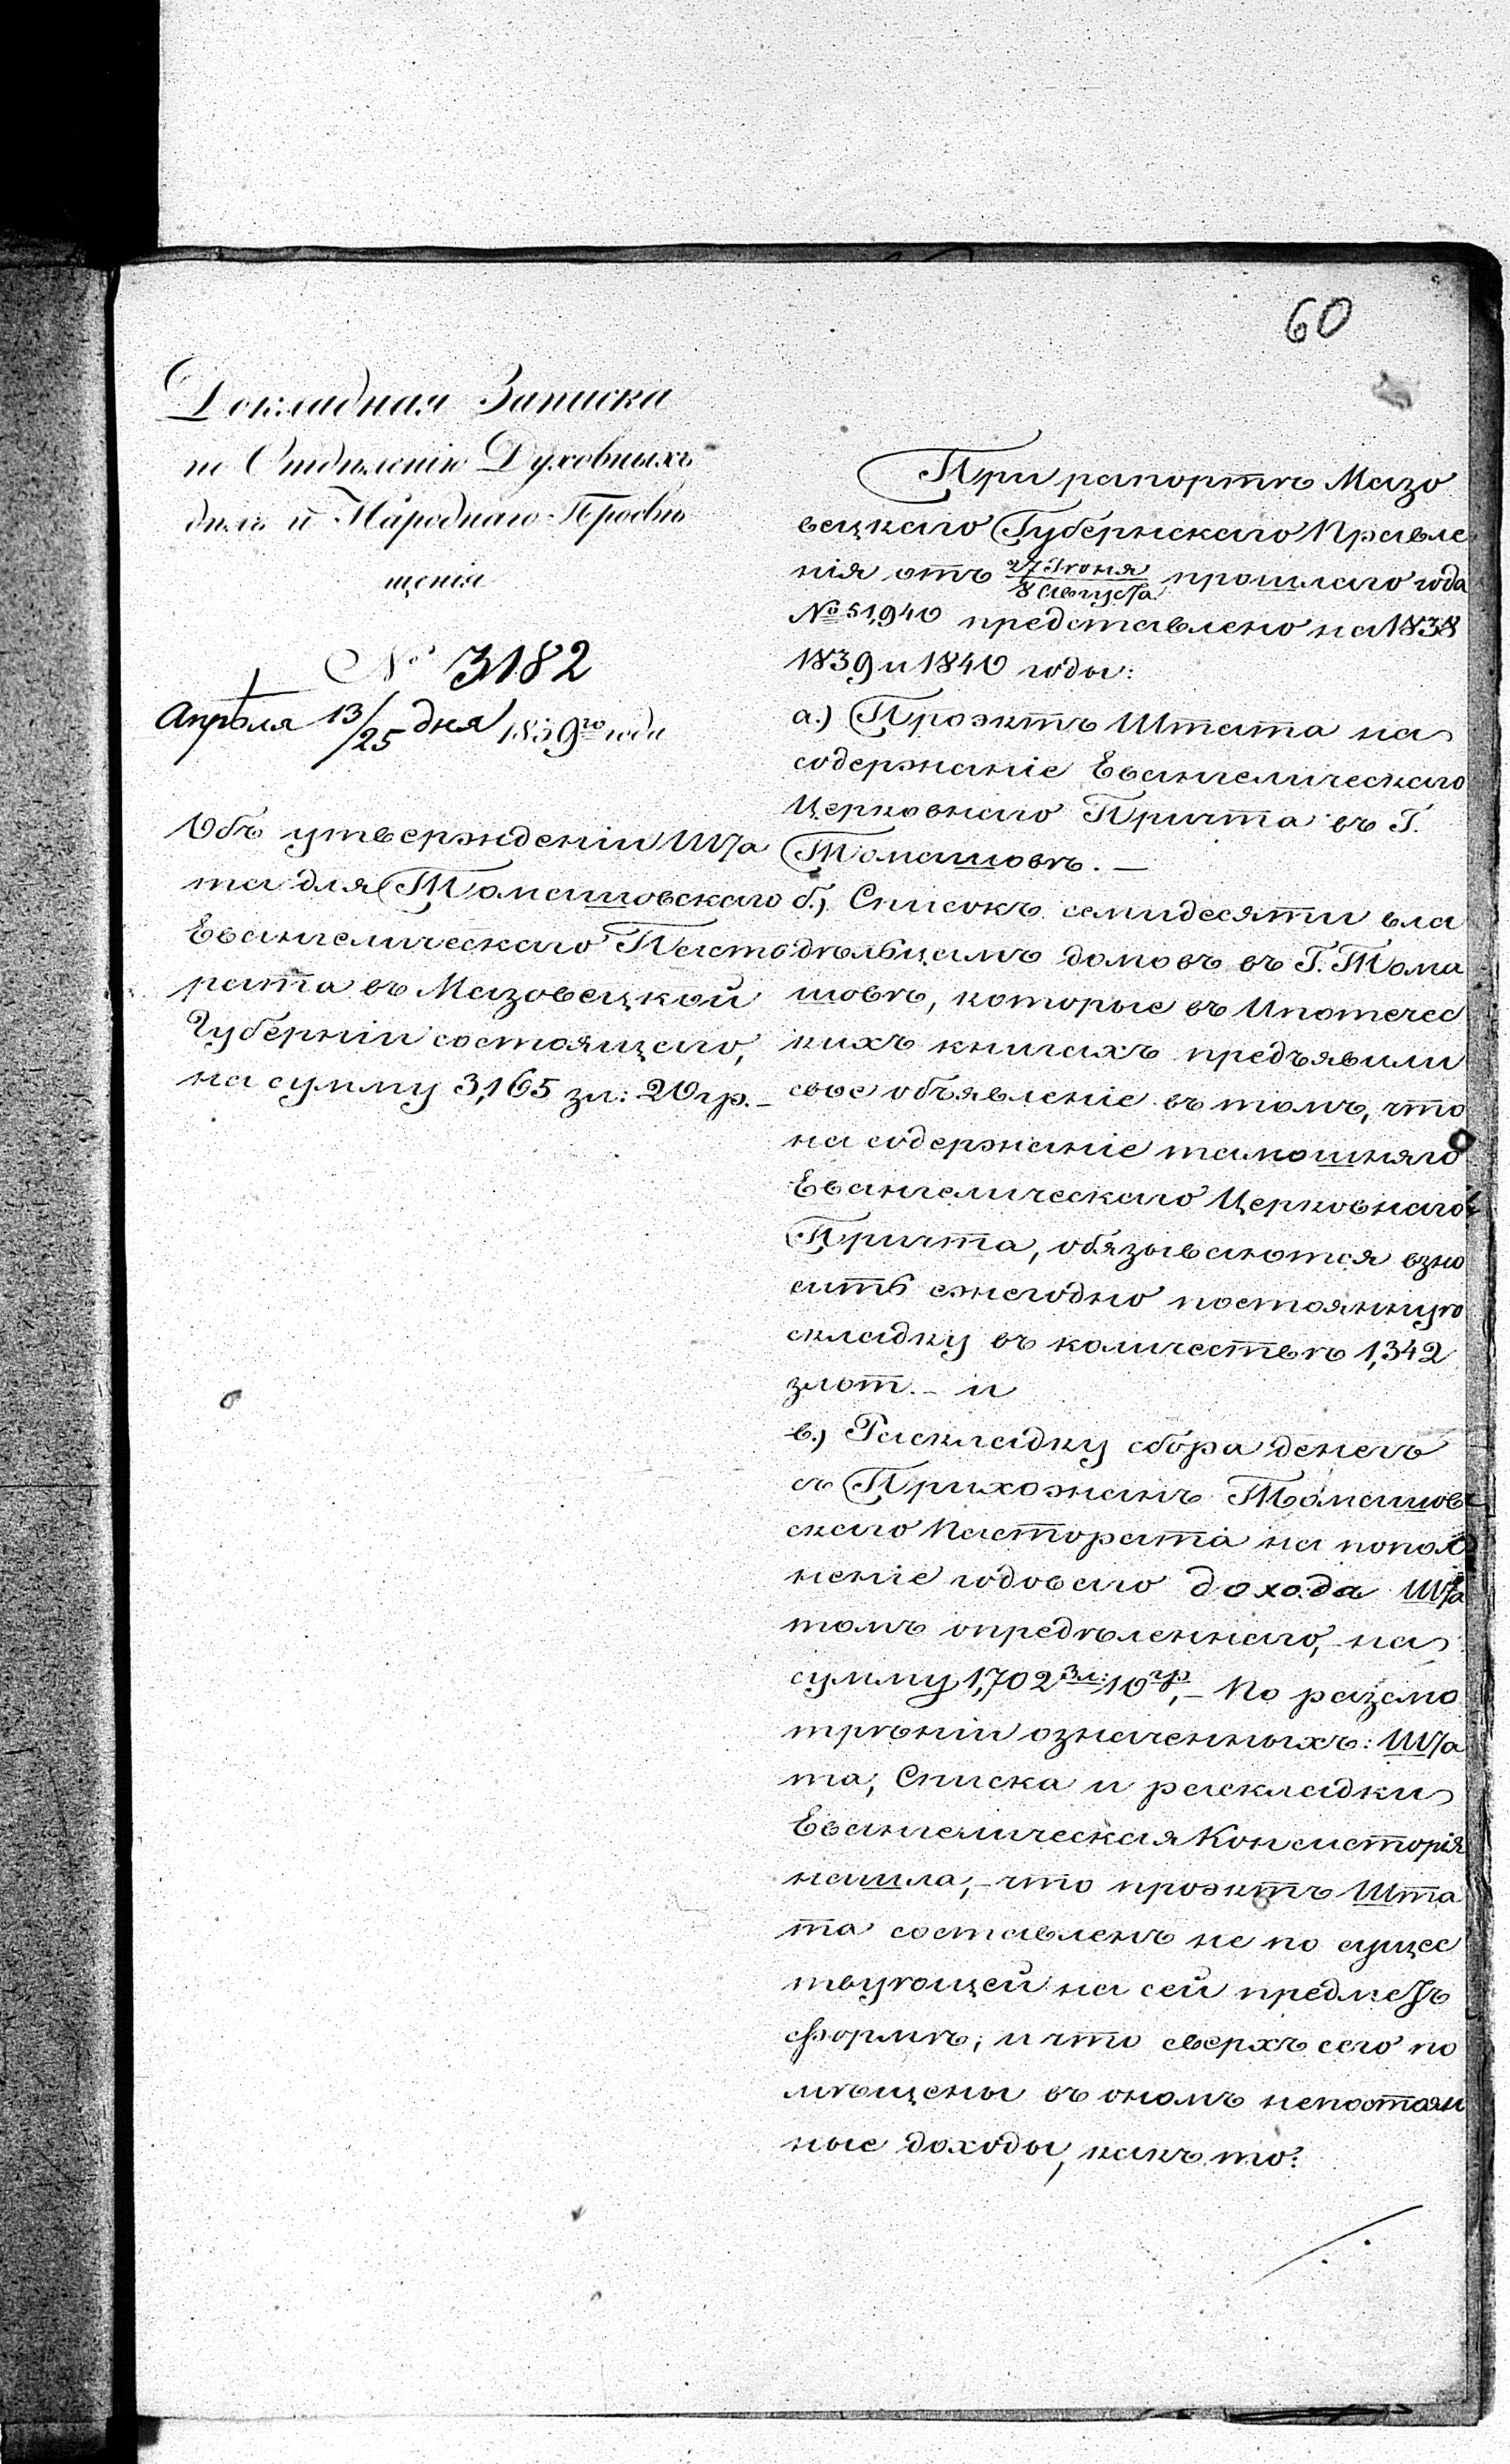 60
Докладная Записка
по Отдѣленію Духовныхъ
дѣлъ и Народнаго Просвѣ
щенія
№ 3182
Апрѣля 13/25 дня 1839го года
Объ утвержденіи Шта
та для Томашовскаго
Евангелическаго Пасто
рата въ Мазовецкой
Губерніи состоящаго,
на сумму 3,165 зл: 20 гр.–
При рапортѣ Мазо
вецкаго Губернскаго Правле
нія отъ 27 Іюня/8 Августа прошлаго года
№ 51,940 представлено на 1838
1839 и 1840 годы:
а.) Проэктъ Штата на
содержаніе Евангелическаго
Церковнаго Причта въ Г.
Томашовѣ.–
б.) Списокъ семидесяти вла
дѣльцамъ домовъ въ Г. Тома
шовѣ, которые въ Ипотечес
кихъ книгахъ предъявили
свое объявленіе въ томъ, что
на содержаніе тамошняго
Евангелическаго Церковнаго
Причта, обязываются взно
сить ежегодно постоянную
складку въ количествѣ 1,342
злот.– и
в.) Раскладку сбора денегъ
съ Прихожанъ Томашов
скаго Пастората на попол
неніе годоваго дохода Шта
томъ опредѣленнаго, на
сумму 1,702 зл: 10 гр,– По разсмо
трѣніи означенныхъ: Шта
та, Списка и раскладки
Евангелическая Консисторія
нашла,– что проэктъ Шта
та составленъ не по сущес
твующей на сей предметъ
формѣ; и что сверхъ сего по
мѣщены въ ономъ непостоян
ные доходы, какъ то: